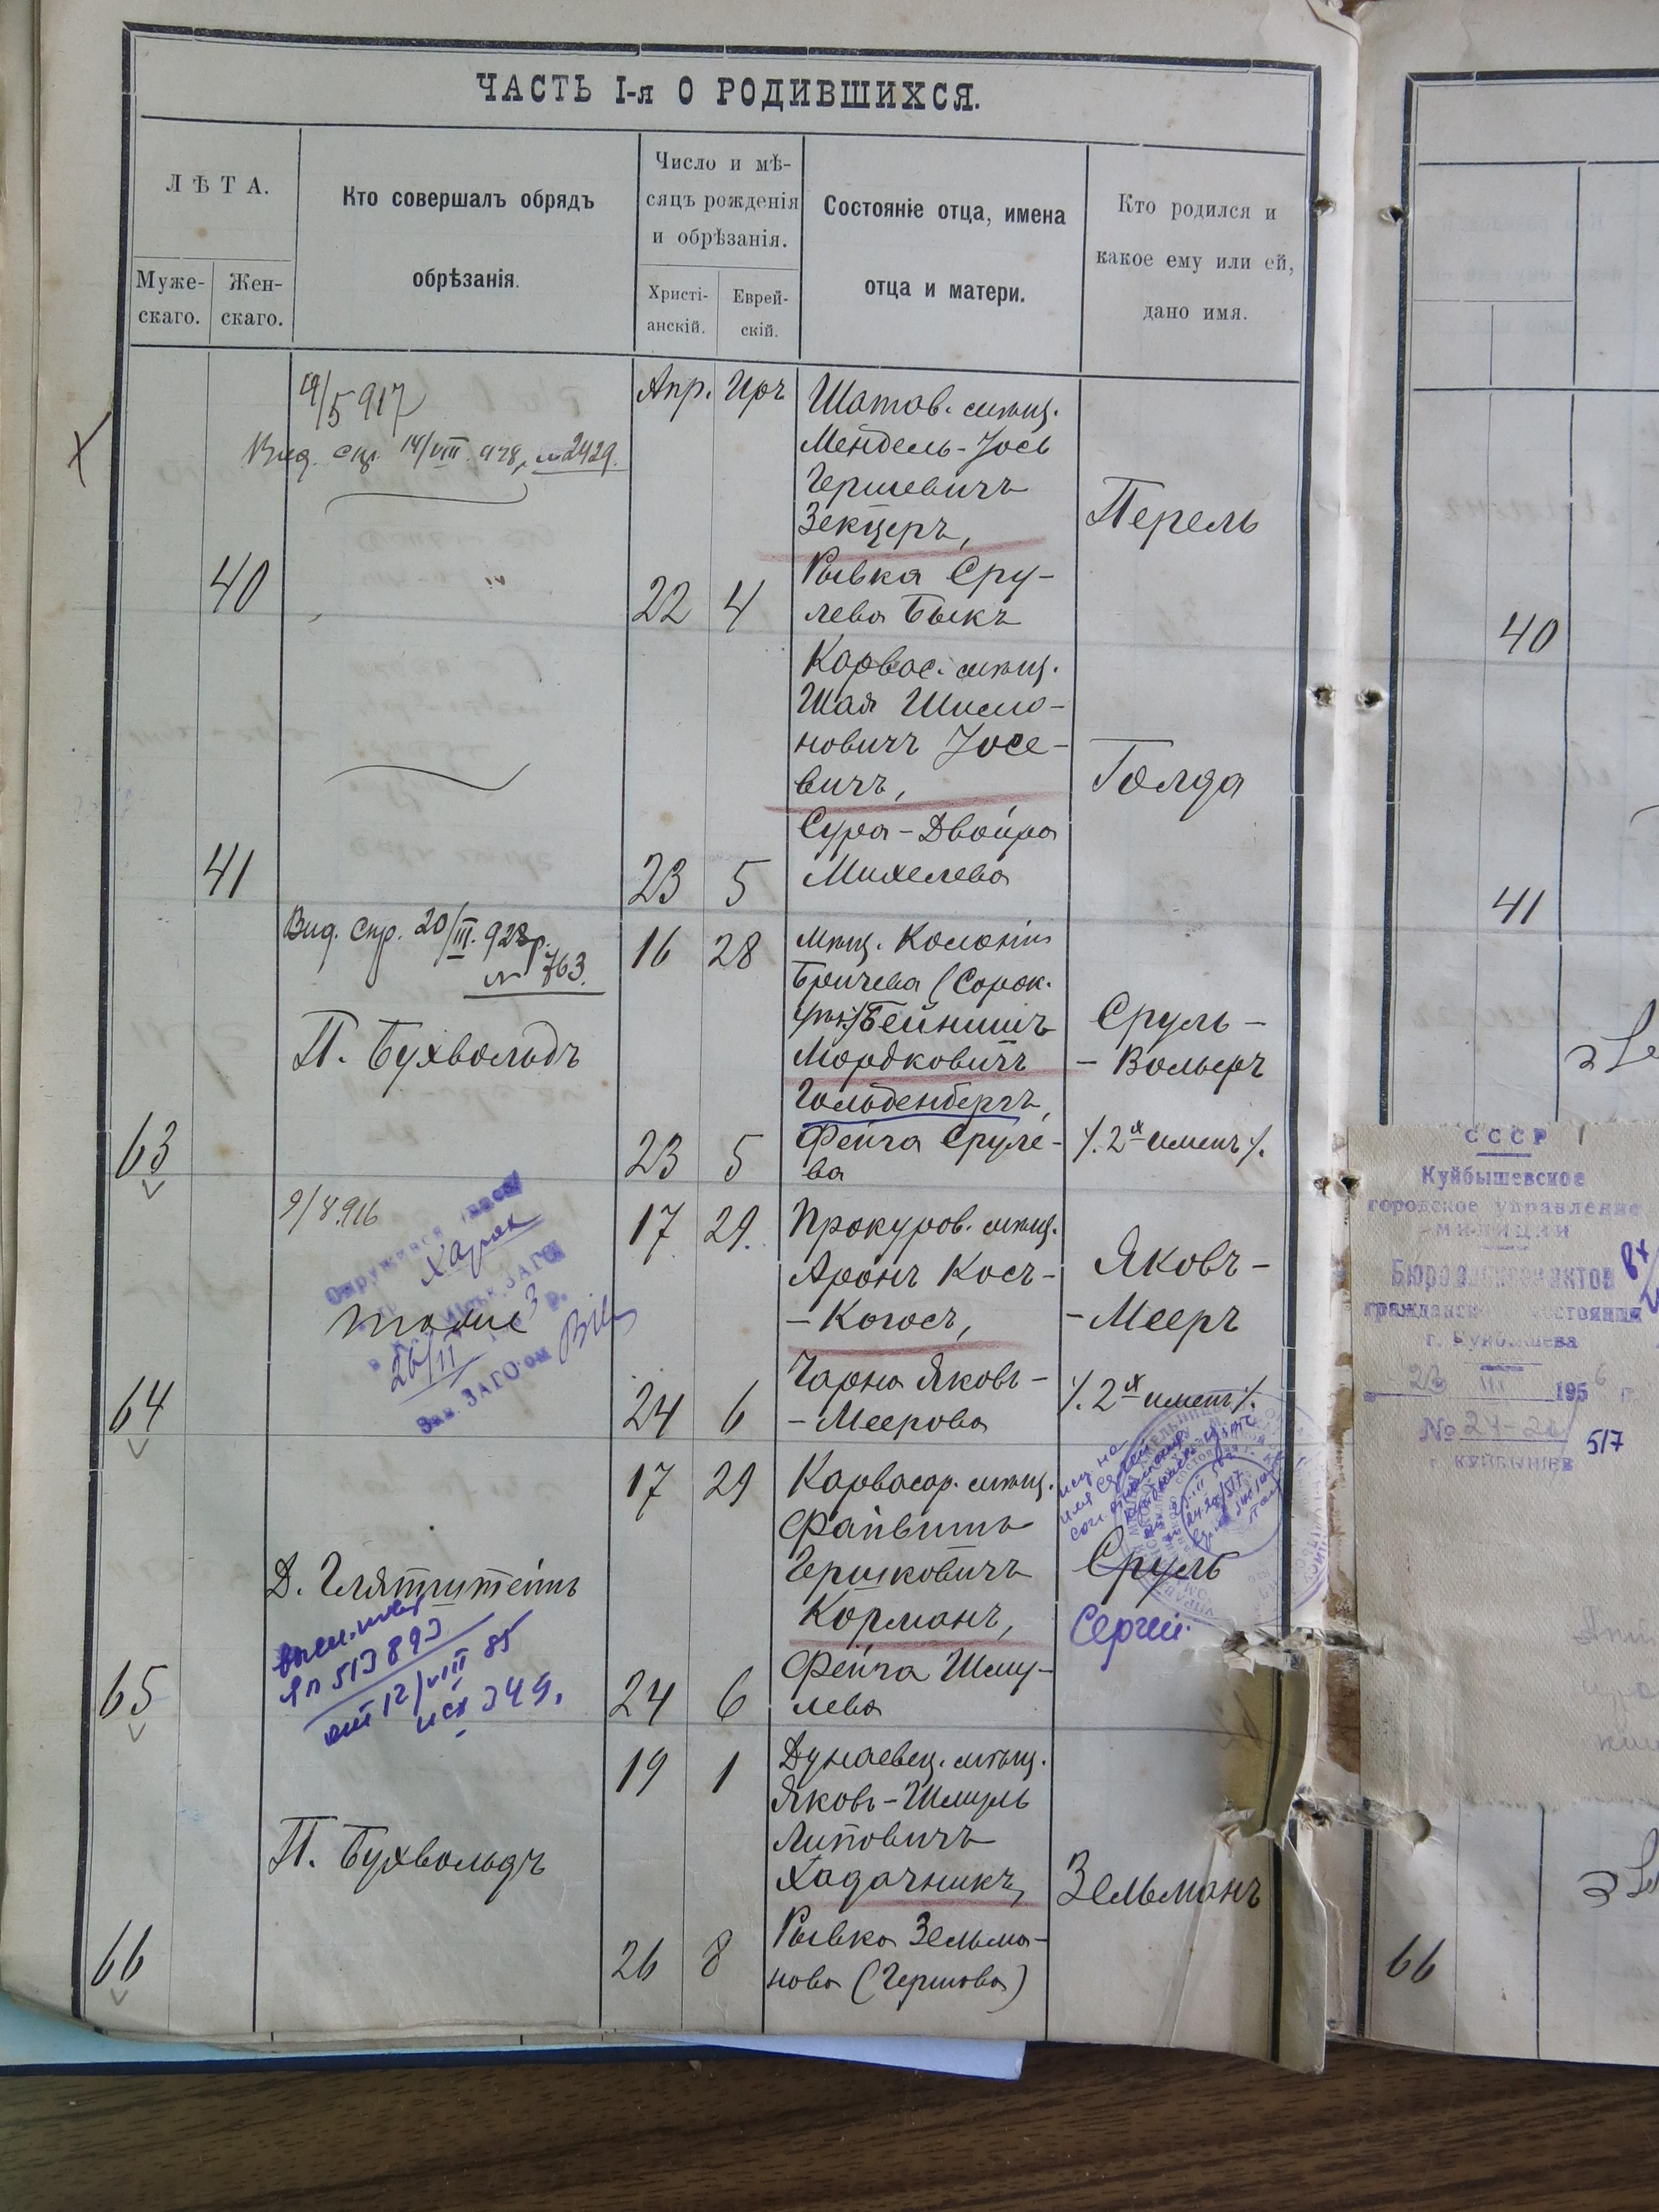 ЧАСТЬ I-я О РОДИВШИХСЯ.
ЛѢТА.
Муже-
скаго.
Жен-
скаго.
Кто совершалъ обрядъ
обрѣзанія.
Число и мѣ-
сяцъ рожденія
и обрѣзанія.
Христі-
анскій.
Еврей-
скій.
Состояніе отца, имена
отца и матери.
Кто родился и
какое ему или ей,
дано имя.
19/5 917
Вид. спр. 14/VIII. 928, №2429.
40
Апр. Иръ
22 4
Шатав. мѣщ.
Мендель-Іось
Гершевичъ
Зекцеръ,
Рывка Сру-
лева Быкъ
Перель
41
23 5
Карвас. мѣщ.
Шая Шимо-
новичъ Іосе-
вичъ,
Сура-Двойра
Михелева
Голда
Вид. спр. 20/III. 928р.
№ 763.
П. Бухвольдъ
63
16 28
23 5
Мѣщ. Колоніи
Бричева (Сорок.
уѣз.) Бейнишъ
Мордковичъ
Гольденбергъ,
Фейга Сруле-
ва
Сруль-
-Вольфъ
/. 2х именъ /.
9/8.916
тоже
26/II
64
17 29.
24 6
Прокуров. мѣщ.
Аронъ Кос-
-Когосъ,
Чарна Яковъ-
-Меерова
Яковъ-
-Мееръ
/. 2х именъ /.
Д. Глятштейнъ
513893
от 12/VIII 85
исх 349.
65
17 29
24 6
Карвасар. мѣщ.
Файвишъ
Гершковичъ
Корманъ,
Фейга Шму-
лева
Сруль
Сергей.
П. Бухвольдъ
66
19 1
26 8
Дунаевец. мѣщ.
Яковъ-Шмуль
Липовичъ
Хадачникъ,
Рывка Зельма-
нова (Гершова)
Зельманъ
40
41
СССР
Куйбышевское
городское управление
милиции
Бюро записи актов
гражданского состояния
г. Куйбышева
26 III 1956 г
№ 24-20/
517
г. КУЙБЫШЕВ
66